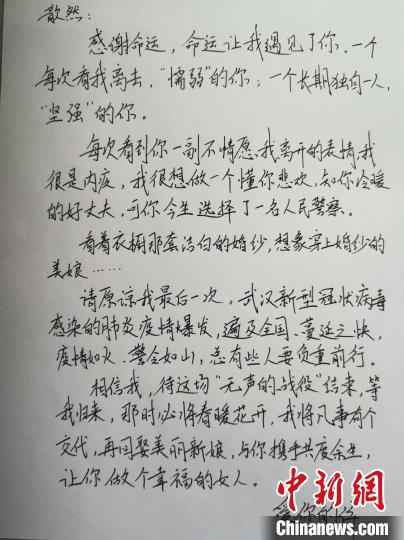 歆然:
感谢命运，命运让我遇见了你.一个
每次看我离去，“懦弱”的你；一个长期独自一人，
“坚强”的你.
每次看到你一副不情愿我离开的表情，我
很是内疚，我很想做一个懂你悲欢，知你冷暖
的好丈夫，可你今生选择了一名人民警察.
看着衣橱那套洁白的婚纱，想象穿上婚纱的
美娘……
请原谅我最后一次，武汉新型冠状病毒
感染的肺炎疫情爆发，遍及全国.蔓延之快，
疫情如火.警令如山，总有些人要负重前行.
相信我，待这场“无声的战役”结束，等
我归来，那时必将春暖花开，我将凡事有个
交代，再回娶美丽新娘，与你携手共度余生，
让你做个幸福的女人.
中新网
Chinanews.com